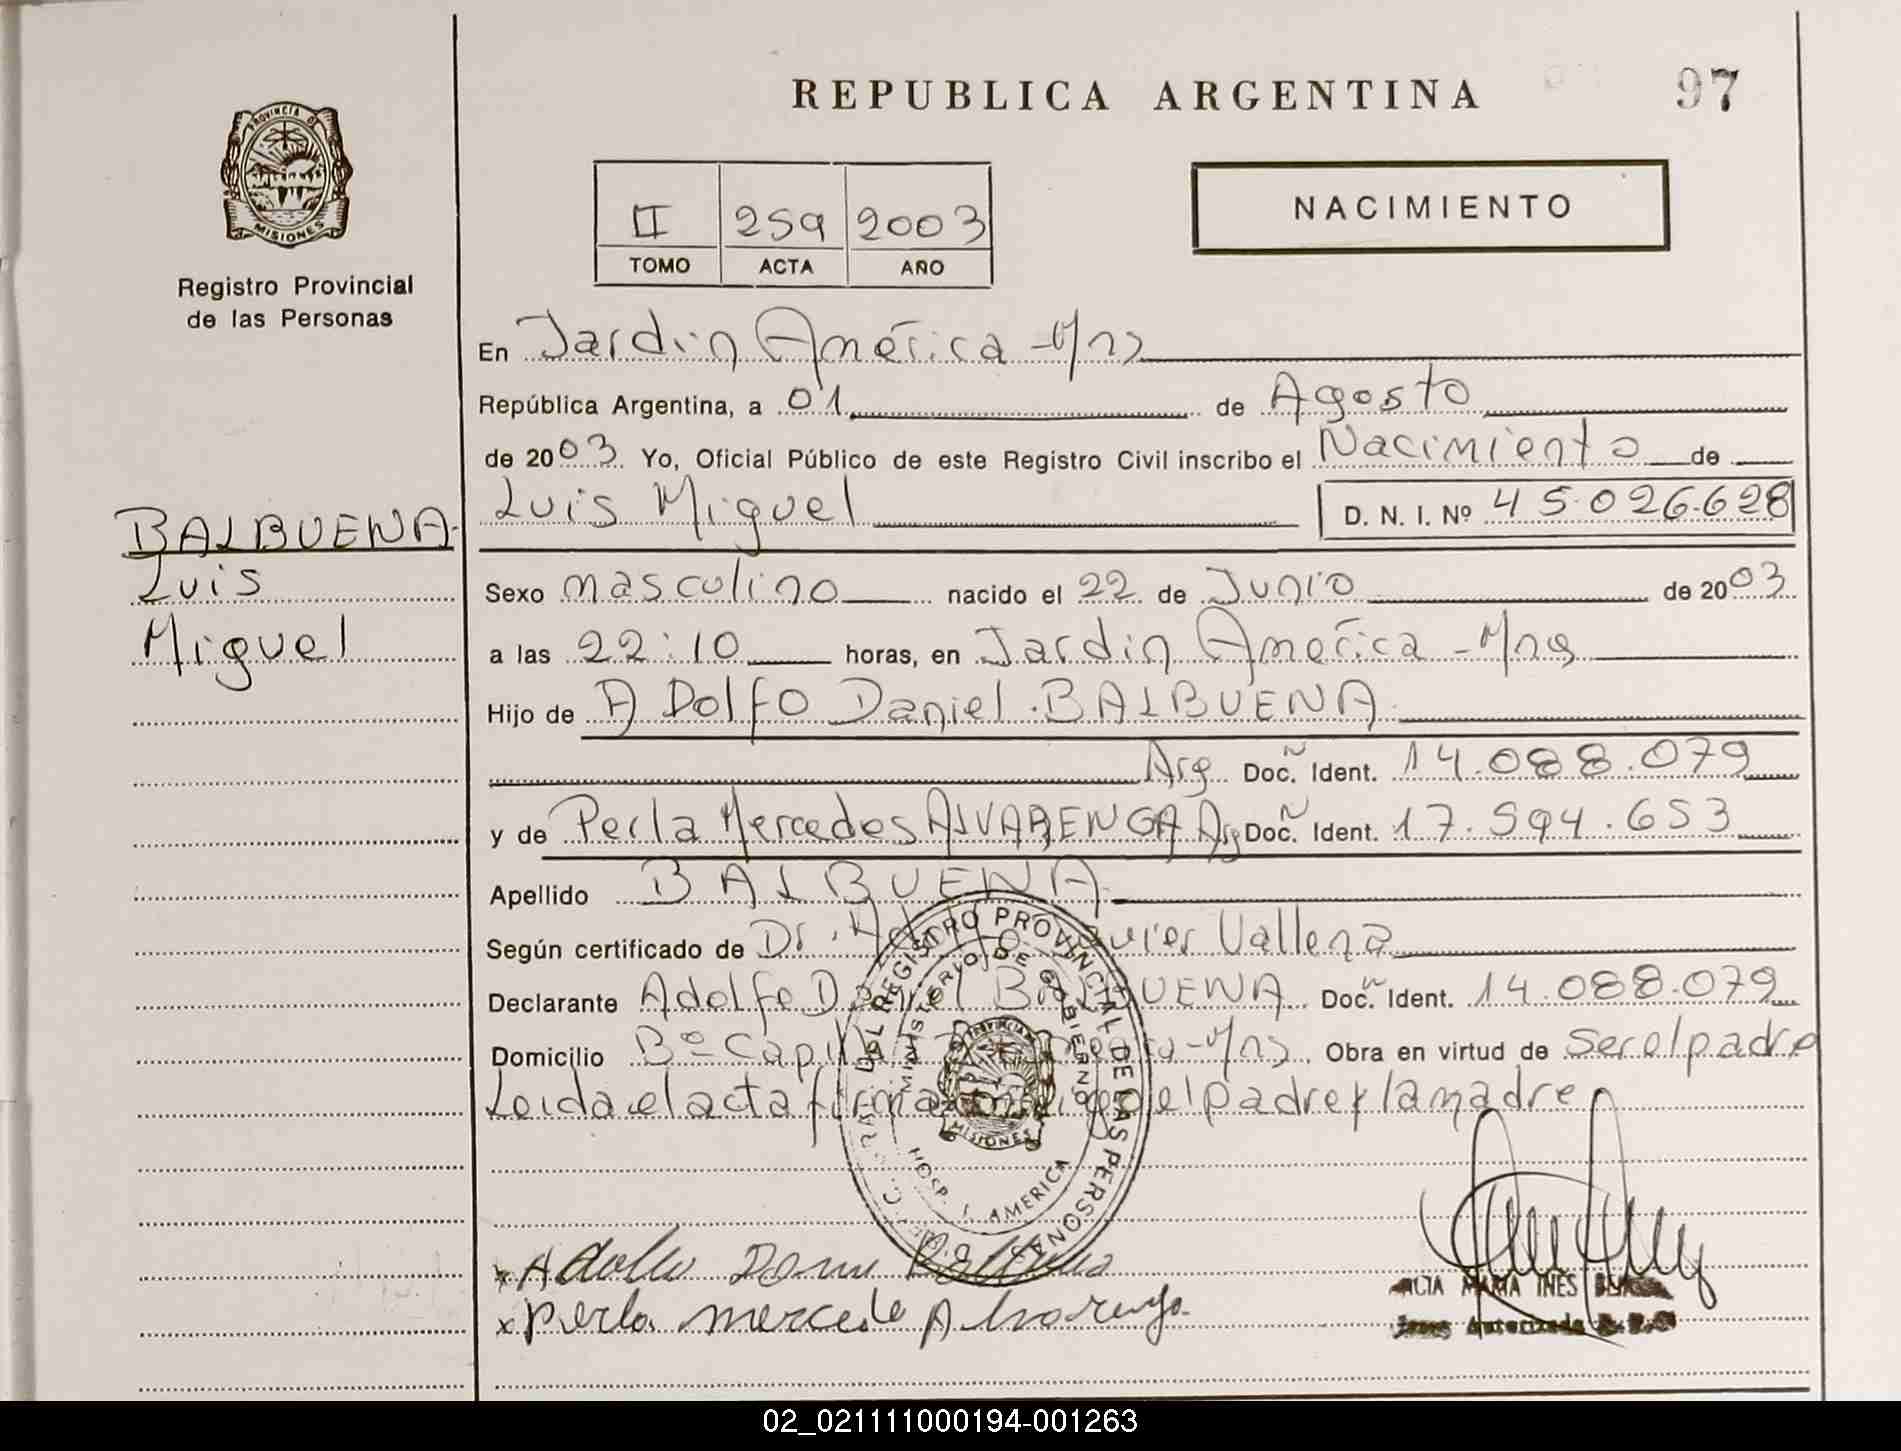 REPUBLICA ARGENTINA
97
PROVINCIA D
MISIONES
Registro Provincial
de las Personas
II 259 2003
TOMO ACTA AÑO
NACIMIENTO
En Jardin América - Mns
República Argentina, a 01 de Agosto
de 2003 Yo, Oficial Público de este Registro Civil inscribo el Nacimiento de
Luis Miguel D. N. I. Nº 45.026.628
BALBUENA
Luis
Miguel
Sexo masculino nacido el 22 de Junio de 2003
a las 22:10 horas, en Jardin América - Mns
Hijo de ADolfo Daniel BALBUENA
Arg Doc. Ident. 14.088.079
y de Perla Mercedes ALVARENGA Arg Doc. Ident. 17.594.653
Apellido BALBUENA
Según certificado de Dr. Javier Vallena
Declarante Adolfo Daniel BALBUENA Doc. Ident. 14.088.079
Domicilio Bº Capilla - Mns Obra en virtud de ser el padre
Leida el acta firman el padre y la madre
DEL REGISTRO PROVINCIAL DE LAS PERSONAS
MINISTERIO DE GOBIERNO
PROVINCIA
MISIONES
HOSP. J. AMERICA
Adolfo
Perla mercede Alvarenga
MARIA INES
Autorizada
02_021111000194-001263